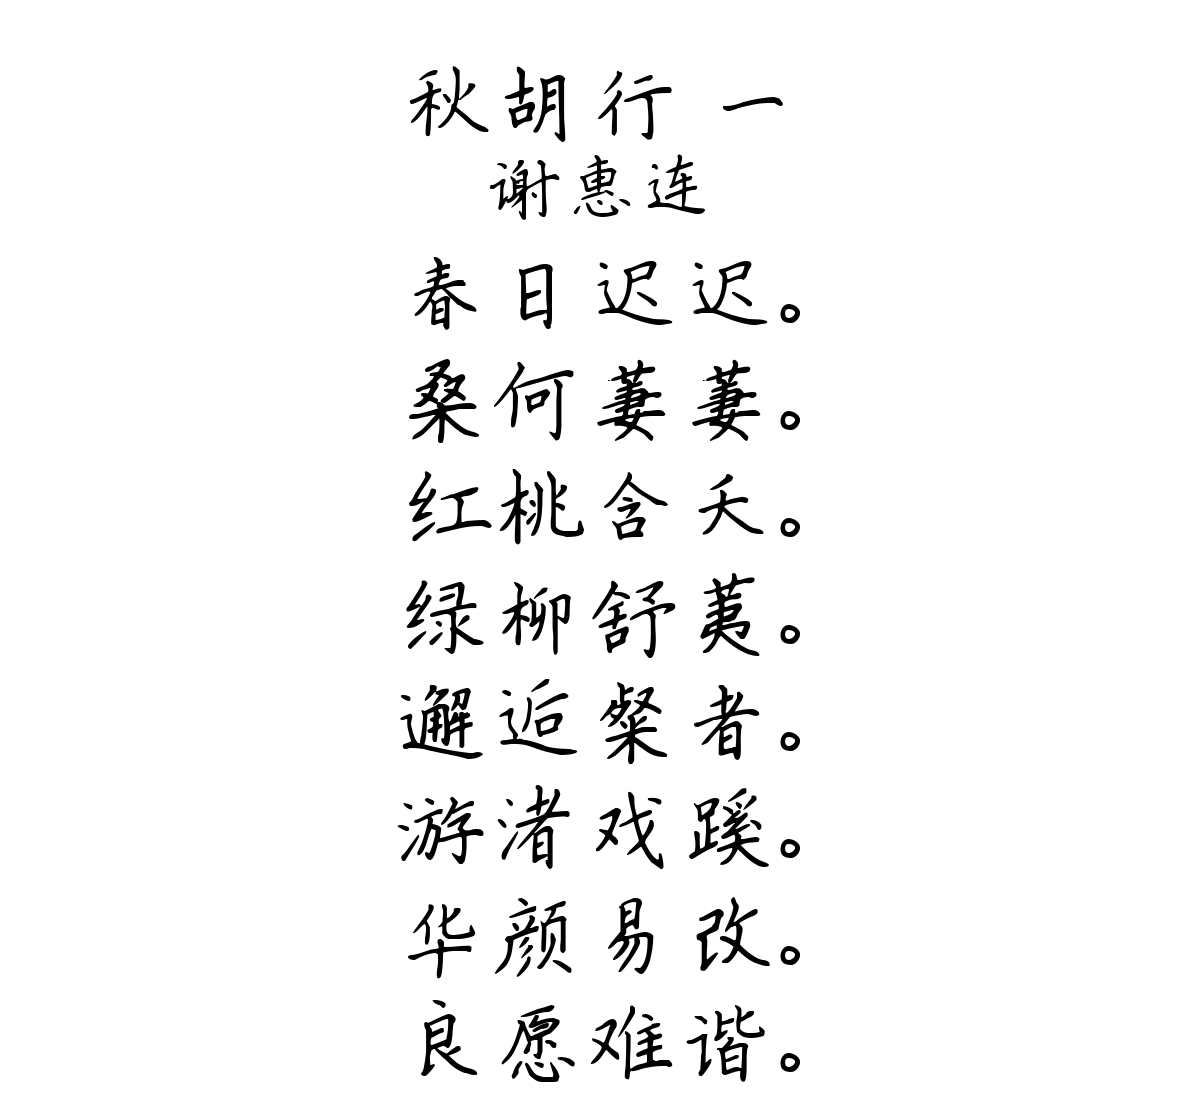 秋胡行 一
谢惠连
春日迟迟。
桑何萋萋。
红桃含夭。
绿柳舒荑。
邂逅粲者。
游渚戏蹊。
华颜易改。
良愿难谐。